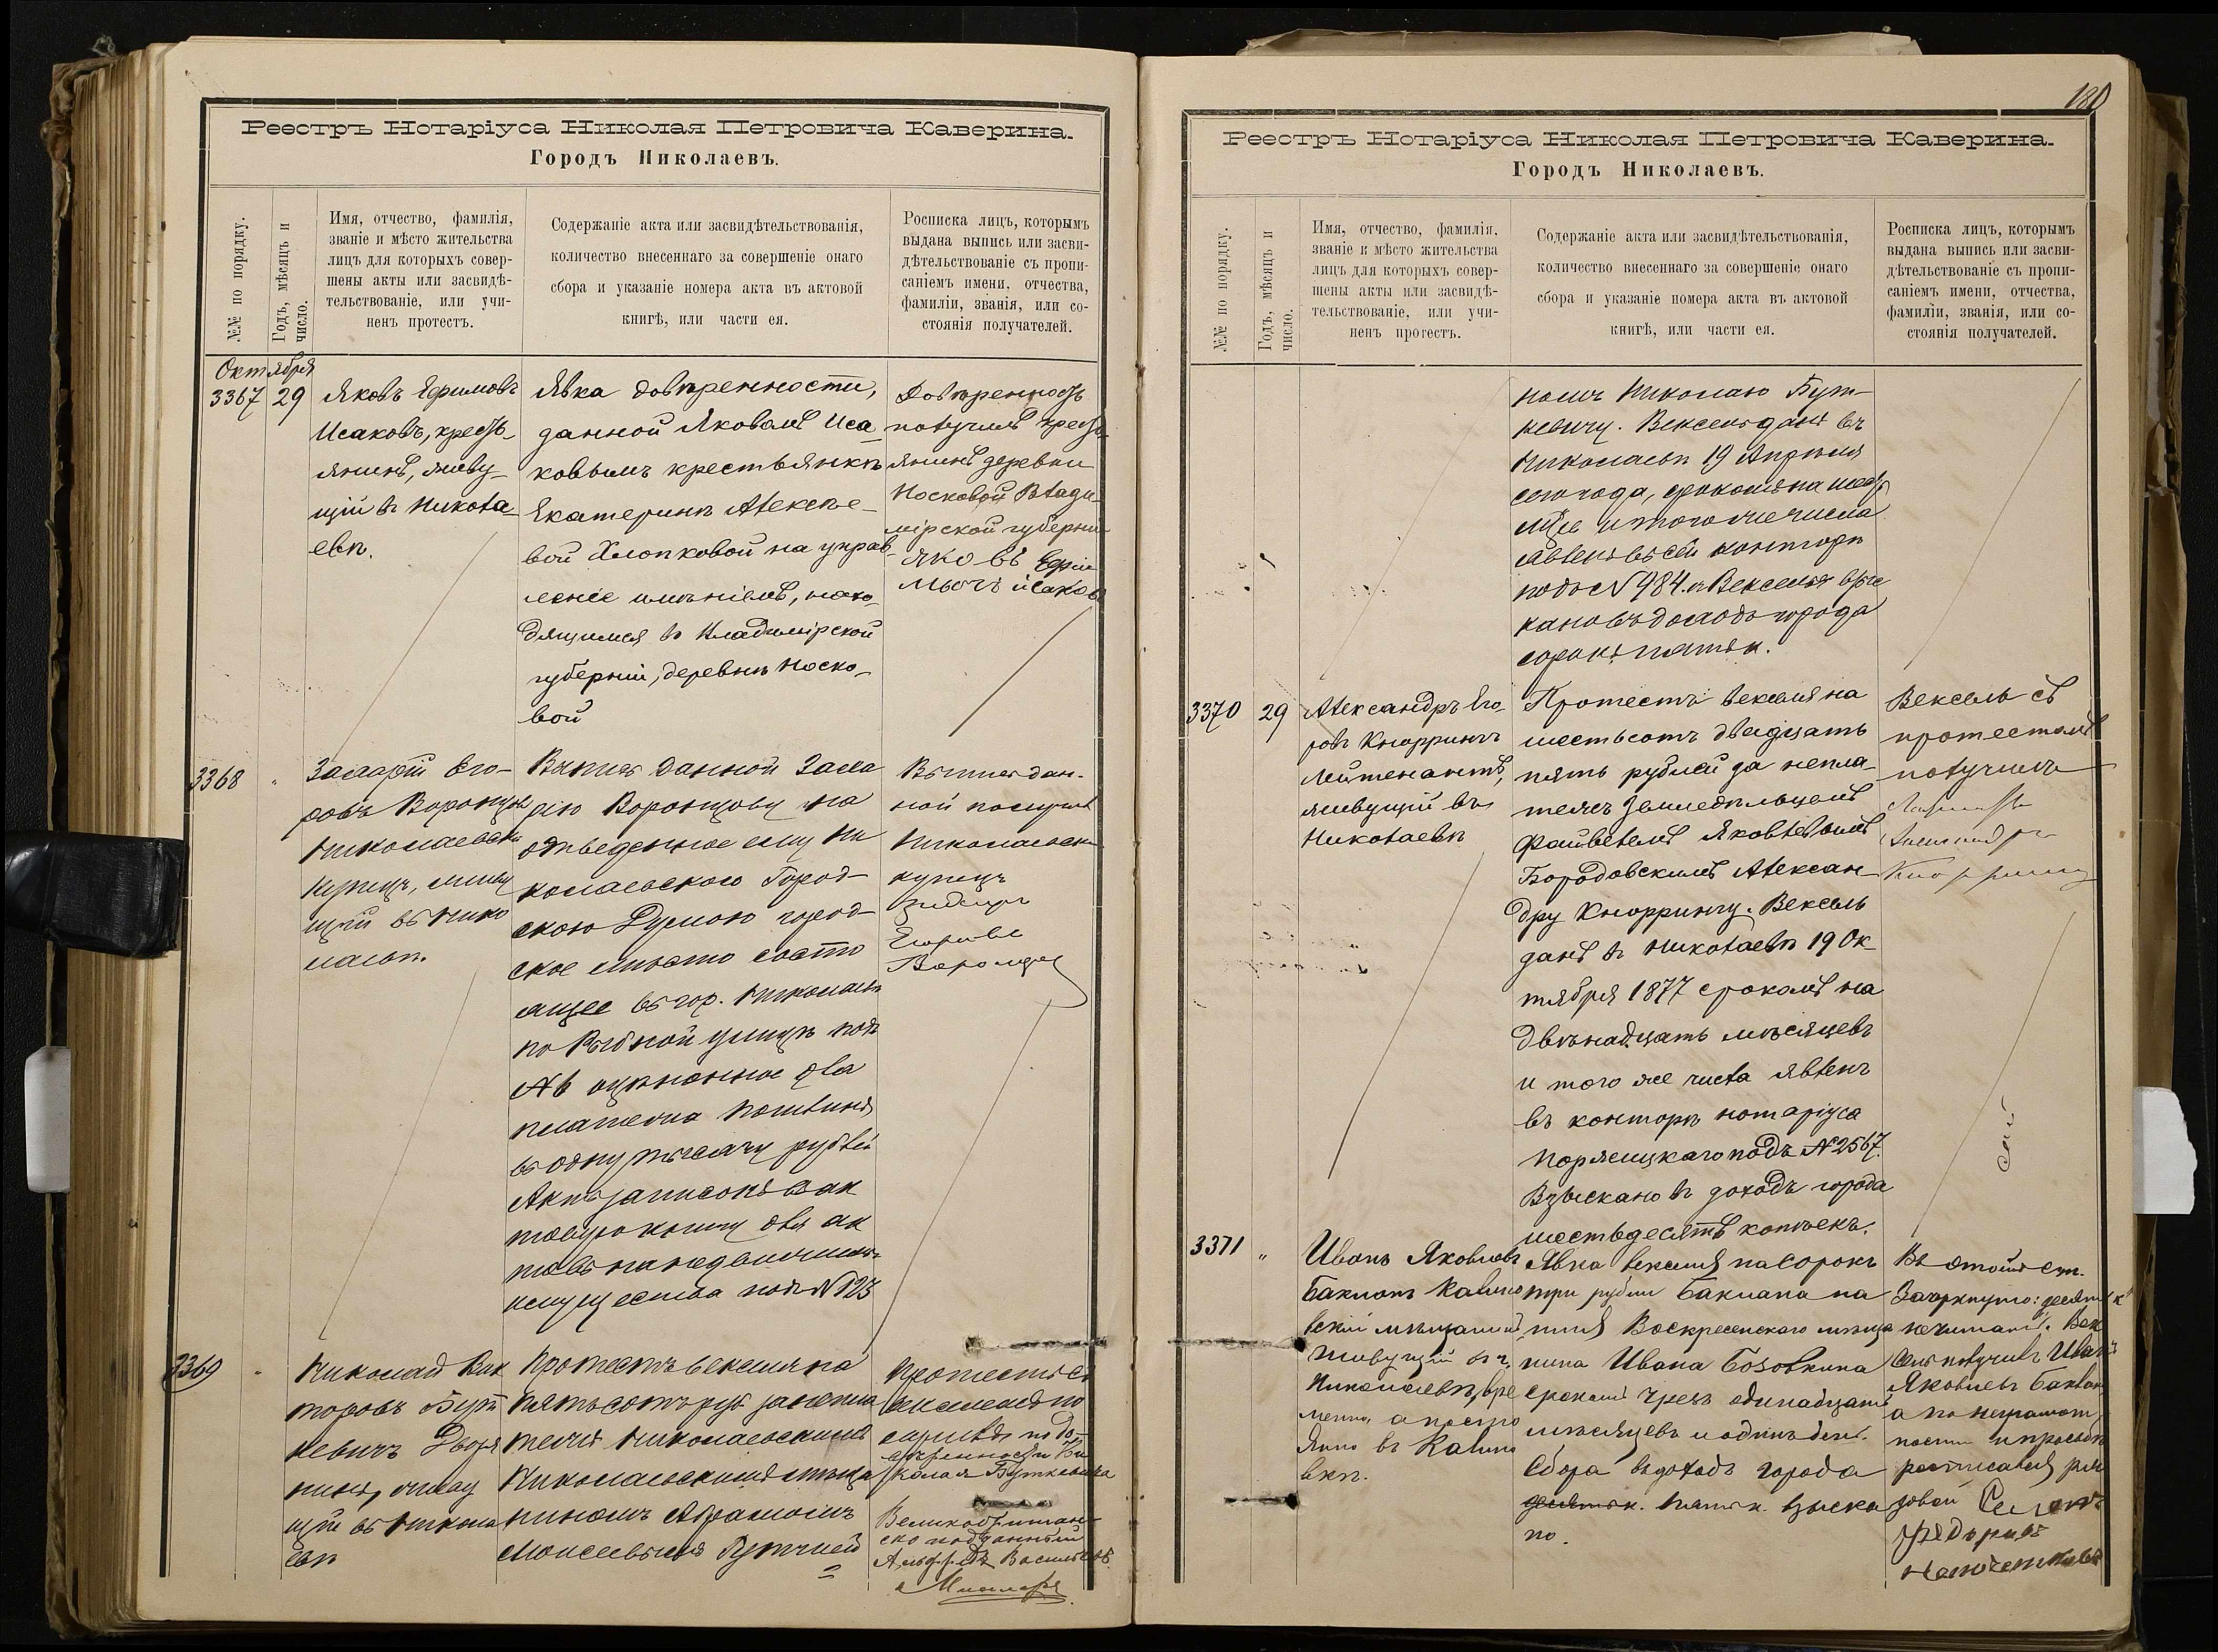 Реестръ Нотаріуса Николая Петровича Каверина.
Городъ Николаевъ.
№№ по порядку.
Годъ, мѣсяцъ и
число.
Имя, отчество, фамилія,
званіе и мѣсто жительства
лицъ для которыхъ совер-
шены акты или засвидѣ-
тельствованіе, или учи-
ненъ протестъ.
Содержаніе акта или засвидѣтельствованія,
количество внесеннаго за совершеніе онаго
сбора и указаніе номера акта въ актовой
книгѣ, или части ея.
Росписка лицъ, которымъ
выдана выпись или засви-
дѣтельствованіе съ пропи-
саніемъ имени, отчества,
фамиліи, званія, или со-
стоянія получателей.
Октября
3367 29
Яковъ Ефимовъ
Исаковъ, кресть-
янинъ, живу-
щій въ Никола-
евѣ.
Явка довѣренности,
данной Яковомъ Иса
ковымъ крестьянкѣ
Екатеринѣ Алексѣе-
вой Хлопковой на управ-
леніе имѣніемъ, нахо-
дящимся въ Владимірской
губерніи, деревнѣ Носко-
вой
Довѣренность
получилъ кресть-
янинъ деревни
Носковой Влади-
мірской губерніи
Яковъ Ефи
мычъ исаков
3368 "
Захарій Его-
ровъ Воронцовъ
Николаевскій
купецъ, живу
щій въ Нико
лаевѣ.
Выпись данной Заха
рію Воронцову на
отведенное ему Ни
колаевскою Город-
скою Думою город-
ское мѣсто состо
ящее въ гор. Николаевѣ
по Рыбной улицѣ подъ
оцѣненное для
платежа пошлинъ
въ одну тысячу рублей
Актъ записанъ въ ак
товую книгу для ак
товъ на недвижимыя
имущества подъ № 123
Выпись дан-
ной получилъ
Николаевскій
купецъ
Захаръ
Егоровъ
Воронцовъ
3369 "
Николай Вик
торовъ Бут
кевичъ Дворя
нинъ, живу
щій въ Никола
евѣ
Протестъ векселя на
пятьсотъ руб за непла
тежъ Николаевскимъ
Николаевскимъ мѣща
ниномъ Абрамомъ
Моисеевымъ
Протестъ съ
векселемъ по
лучилъ по до-
вѣренности Ни
колая Буткевича
Великобритан-
ско подданный
Альфредъ Васильевъ
180
Реестръ Нотаріуса Николая Петровича Каверина.
Городъ Николаевъ.
№№ по порядку.
Годъ, мѣсяцъ и
число.
Имя, отчество, фамилія,
званіе и мѣсто жительства
лицъ для которыхъ совер-
шены акты или засвидѣ-
тельствованіе, или учи-
ненъ протестъ.
Содержаніе акта или засвидѣтельствованія,
количество внесеннаго за совершеніе онаго
сбора и указаніе номера акта въ актовой
книгѣ, или части ея.
Росписка лицъ, которымъ
выдана выпись или засви-
дѣтельствованіе съ пропи-
саніемъ имени, отчества,
фамиліи, званія, или со-
стоянія получателей.
Николаю Бут-
кевичу. Вексель данъ въ
Николаевѣ 19 Апрѣля
сего года, срокомъ на
и того же числа
явленъ въ сей конторѣ
подъ № 984. Векселя взыс
кано въ доходъ города
сорокъ пять к.
3370 29
Александръ Его-
ровъ Кноррингъ
Лейтенантъ,
живущій въ
Николаевѣ
Протестъ векселя на
шестьсотъ двадцать
пять рублей за непла-
тежъ Земледѣльцемъ
Файвелемъ Яковлевымъ
Бородовскимъ Алексан-
дру Кноррингу. Вексель
данъ въ Николаевѣ 19 Ок-
тября 1877 срокомъ на
двѣнадцать мѣсяцевъ
и того же числа явленъ
въ конторѣ нотаріуса
подъ № 2567.
Взыскано въ доходъ города
шестьдесятъ копѣекъ.
Вексель съ
протестомъ
получилъ
Лейтенантъ
Александръ
Кноррингъ
3371 "
Иванъ Яковлевъ
Бакланъ Калино
вскій мѣщанинъ
живущій въ г.
Николаевѣ, вре
менно, а посто
янно въ Калино
вкѣ.
Явка векселя на сорокъ
три рубли Баклана на
имя Воскресенскаго мѣща
нина Ивана Бозовкина
срокомъ чрезъ одинадцать
мѣсяцевъ и одинъ день.
Сбора въ доходъ города
десять к. пять к. взыска
но.
Въ этой ст.
Зачеркнуто: десять к
нечитать. Век
сель получилъ Иванъ
Яковлевъ Бакланъ
а по неграмот
ности и просьбѣ
росписался рядовой